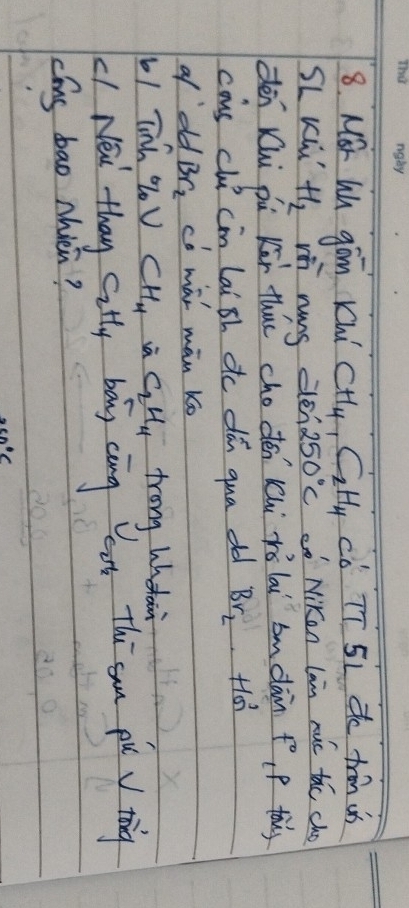 Thứ ngày
8. Một hh gồm khí CH4, C2H4 có TT 5L đc trộn với
5L khí H2 rồi nung đến 250°C có Niken làm xúc tác cho
đến khi pứ kết thúc cho đến khi trở lại ban đầu t°, P tổng
cộng chỉ còn lại 8L đc dẫn qua dd Br2. Hỏi
a/ dd Br2 có mất màu ko
b/ Tính %V CH4 và C2H4 trong hh đầu
c/ Nếu thay C2H4 bằng cùng V C2H2 thì sau pứ V tổng
cộng bao nhiêu?
250°C